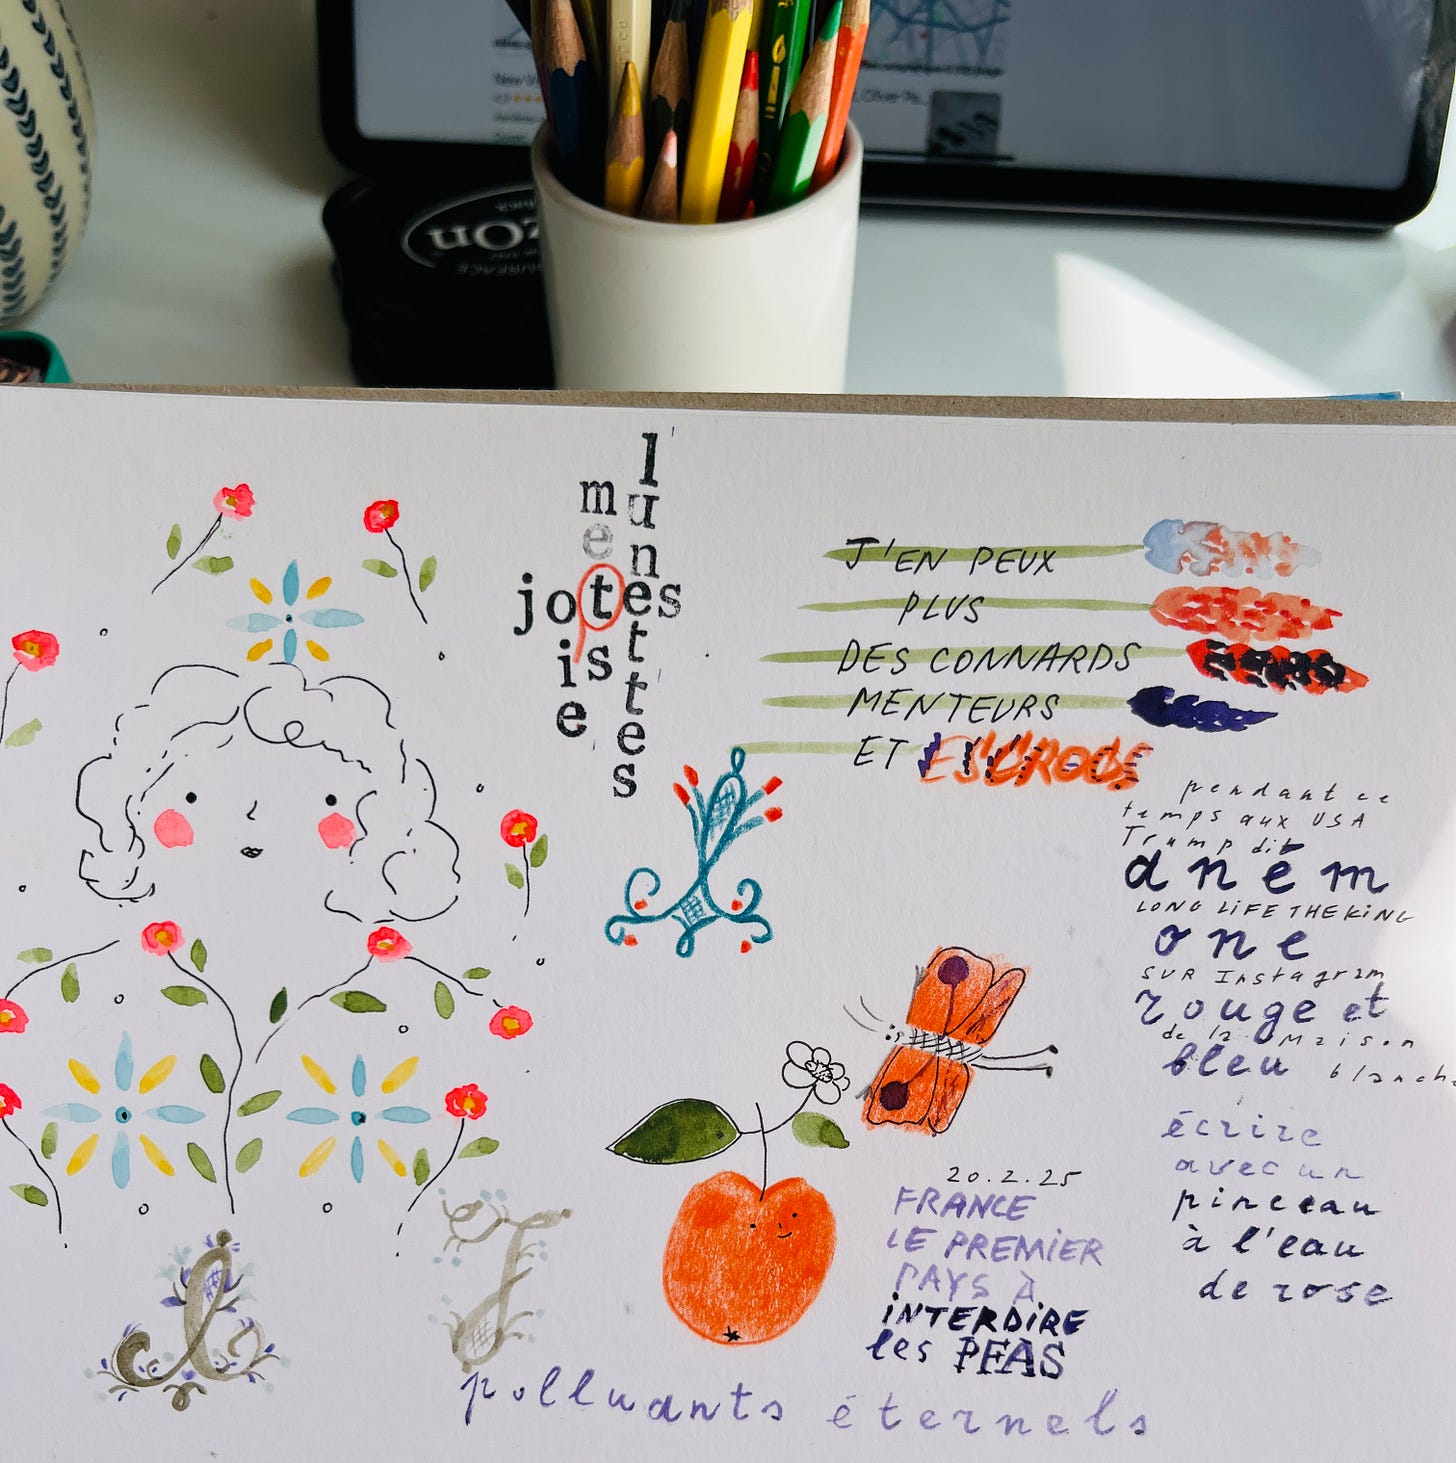 zOn
lunettes
mets
jotes
oie
J'EN PEUX
PLUS
DES CONNARDS
MENTEURS
ET ESCROCS
pendant ce
temps aux USA
Trump dit
aném
LONG LIFE THE KING
one
SUR Instagram
rouge et
de la Maison
bleu blanche
écrire
avec un
pinceau
à l'eau
de rose
20.2.25
FRANCE
LE PREMIER
PAYS À
INTERDIRE
les PFAS
polluants éternels